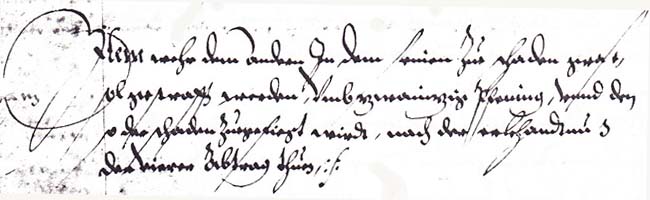 Item wehr dem andern In dem seinen Zue schaden gehet,
sol gestrafft werden, Vmb zwainzig Pfening, vnnd den
so der schaden Zuegefiegt wirdt, nach der erkhandtnus
der vierer Abtrag thuen,